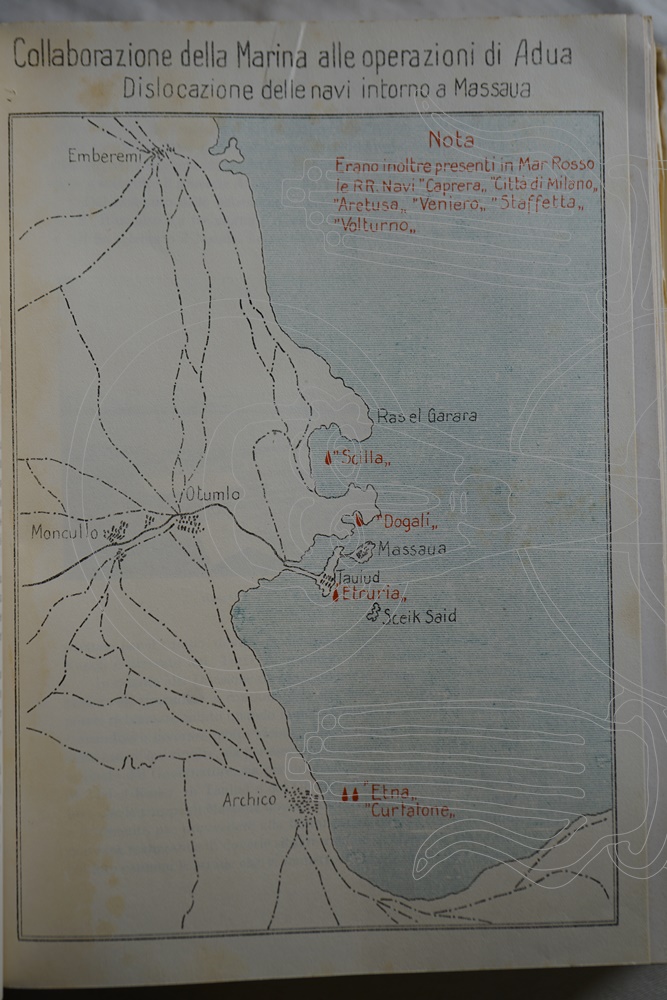 Collaborazione della Marina alle operazioni di Adua
Dislocazione delle navi intorno a Massaua
Emberemi
Nota
Erano inoltre presenti in Mar Rosso
le RR. Navi "Caprera„ "Città di Milano„
"Aretusa„ "Veniero„ "Staffetta„
"Volturno„
Ras el Garara
"Scilla„
Otumlo
"Dogali„
Moncullo
Massaua
Taulud
"Etruria„
Sceik Said
Archico
"Etna„
"Curtatone„